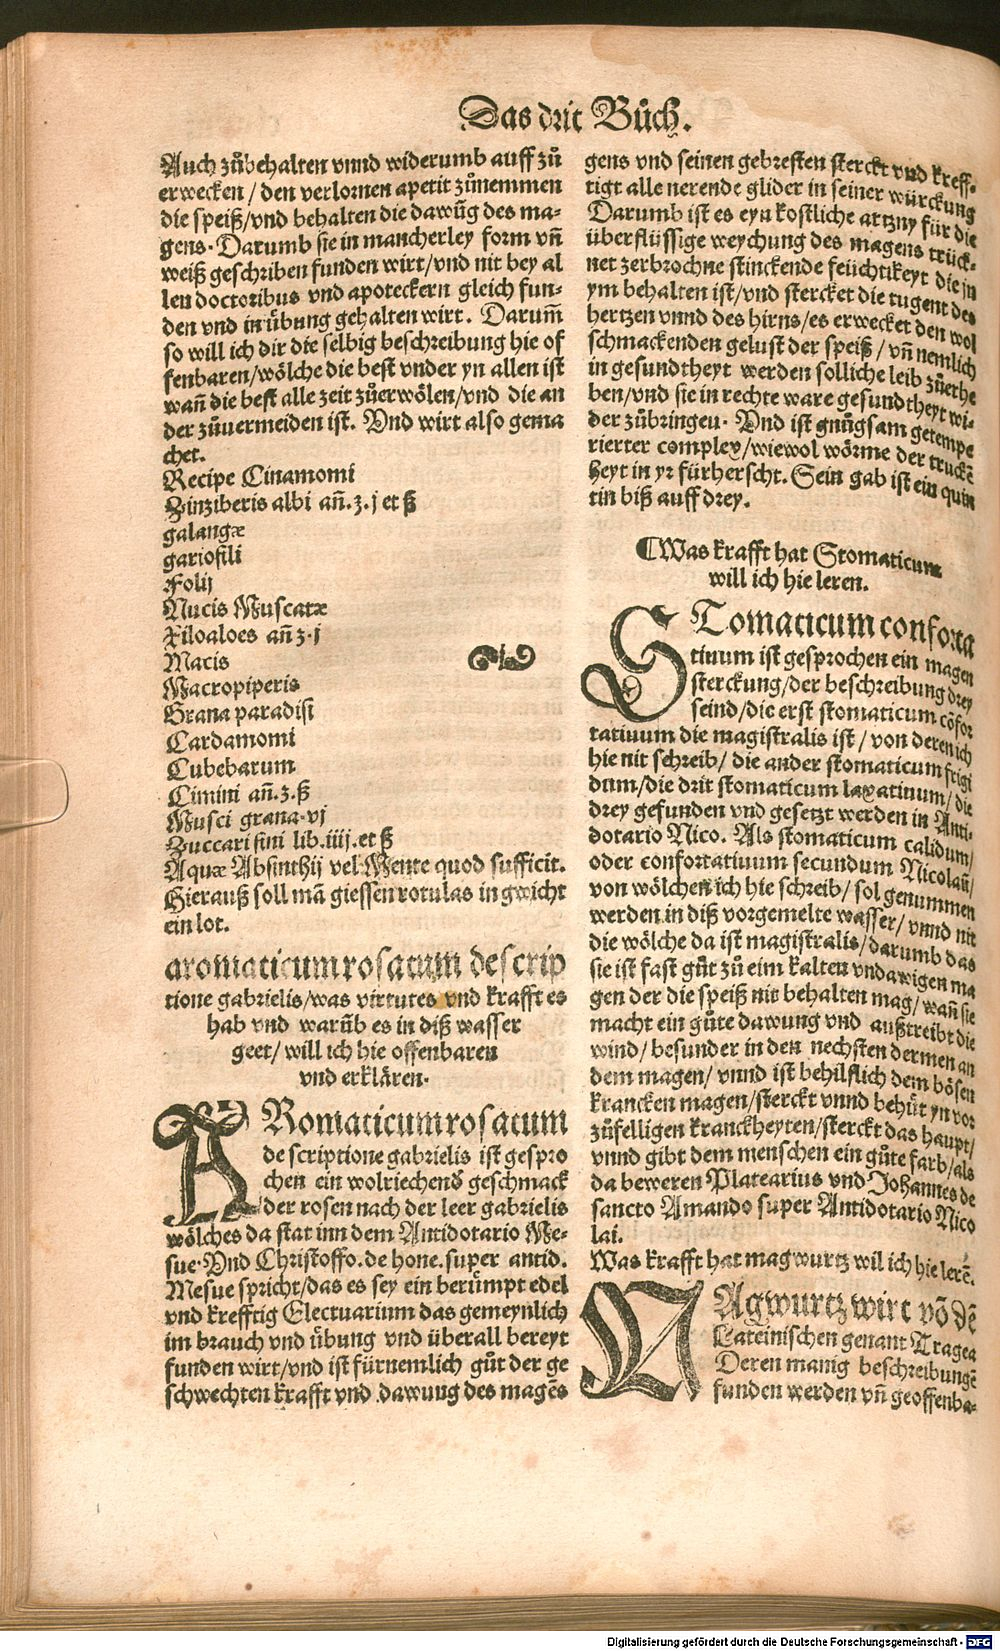 Das drit Bůch.
Auch zůbehalten vnnd widerumb auff zů
erwecken / den verlornen apetit zůnemmen
die speiß/vnd behalten die dawūg des ma-
gens. Darumb sie in mancherley form vn̄
weiß geschriben funden wirt/vnd nit bey al
len doctoribus vnd apoteckern gleich fun-
den vnd in übung gehalten wirt. Darum̄
so will ich dir die selbig beschreibung hie of
fenbaren/wölche die best vnder yn allen ist
wan̄ die best alle zeit zůerwölen/vnd die an
der zůuermeiden ist. Vnd wirt also gema
chet.
Recipe Cinamomi
Zinziberis albi an̄.ʒ.j et ß
galangæ
gariofili
Folij
Nucis Muscatæ
Xiloaloes an̄ ʒ.j
Macis
Macropiperis
Grana paradisi
Cardamomi
Cubebarum
Cimini an̄.ʒ.ß
Musci grana.vj
Zuccari fini lib.iiij.et ß
Aquæ Absinthij vel Mente quod sufficit.
Hierauß soll mā giessen rotulas in gwicht
ein lot.
aromaticum rosatum descrip
tione gabrielis/was virtutes vnd krafft es
hab vnd warūb es in diß wasser
geet/ will ich hie offenbaren
vnd erklären.
ARomaticum rosatum
de scriptione gabrielis ist gespro
chen ein wolriechend geschmack
der rosen nach der leer gabrielis
wölches da stat inn dem Antidotario Me-
sue. Vnd Christoffo.de hone.super antid.
Mesue spricht/das es sey ein berümpt edel
vnd krefftig Electuarium das gemeynlich
im brauch vnd übung vnd überall bereyt
funden wirt/vnd ist fürnemlich gůt der ge
schwechten krafft vnd dawung des magēs
gens vnd seinen gebresten sterckt vnd kreff-
tigt alle nerende glider in seiner würckung
Darumb ist es eyn kostliche artzny für die
überflüssige weychung des magens trück-
net zerbrochne stinckende feüchtikeyt die in
ym behalten ist/vnd stercket die tugent des
hertzen vnnd des hirns/es erwecket den wol
schmackenden gelust der speiß / vn̄ nemlich
in gesundtheyt werden solliche leib zůerhe
ben/vnd sie in rechte ware gesundtheyt wi-
der zůbringen. Vnd ist gnůgsam getempe
rierter complex/wiewol wörme der truckē
heyt in yr fürherscht. Sein gab ist ein quin
tin biß auff drey.
¶Was krafft hat Stomaticum
will ich hie leren.
STomaticum conforta
tiuum ist gesprochen ein magen
sterckung/der beschreibung drey
seind/die erst stomaticum cōfor
tatiuum die magistralis ist / von deren ich
hie nit schreib/ die ander stomaticum frigi
dum/die drit stomaticum laxatiuum/ die
drey gefunden vnd gesetzt werden in Anti-
dotario Nico. Als stomaticum calidum/
oder confortatiuum secundum Nicolaū/
von wölchen ich hie schreib/ sol genummen
werden in diß vorgemelte wasser/ vnnd nit
die wölche da ist magistralis/ darumb das
sie ist fast gůt zů eim kalten vndawigen ma
gen der die speiß nit behalten mag/ wan̄ sie
macht ein gůte dawung vnd außtreibt die
wind/ besunder in den nechsten dermen an
dem magen/ vnnd ist behilflich dem bösen
krancken magen/sterckt vnnd behüt yn vor
zůfelligen kranckheyten/sterckt das haupt/
vnnd gibt dem menschen ein gůte farb/als
da beweren Platearius vnd Johannes de
sancto Amando super Antidotario Nico
lai.
Was krafft hat magwurtz wil ich hie lerē.
MAgwurtz wirt vō dē
Lateinischen genant Tragea
Deren manig beschreibungē
funden werden vn̄ geoffenba-
Digitalisierung gefördert durch die Deutsche Forschungsgemeinschaft - DFG